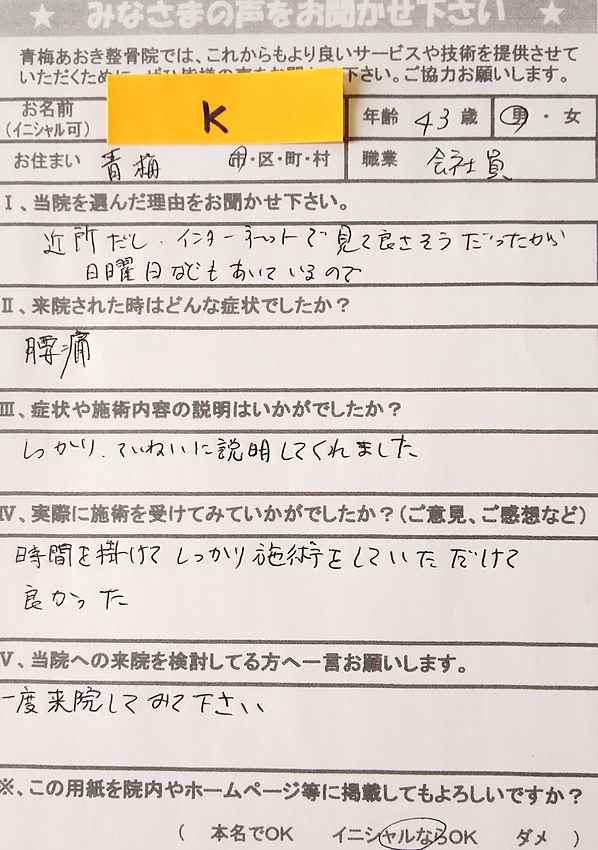 ★ みなさまの声をお聞かせ下さい ★
青梅あおき整骨院では、これからもより良いサービスや技術を提供させて
いただくために、ぜひ皆様の声をお聞かせ下さい。ご協力お願いします。
お名前
(イニシャル可) K 年齢 43 歳 男・女
お住まい 青梅 市・区・町・村 職業 会社員
Ⅰ、当院を選んだ理由をお聞かせ下さい。
近所だし、インターネットで見て良さそうだったから
日曜日などもあいているので
Ⅱ、来院された時はどんな症状でしたか？
腰痛
Ⅲ、症状や施術内容の説明はいかがでしたか？
しっかり、ていねいに説明してくれました
Ⅳ、実際に施術を受けてみていかがでしたか？(ご意見、ご感想など)
時間を掛けてしっかり施術をしていただけて
良かった
Ⅴ、当院への来院を検討してる方へ一言お願いします。
一度来院してみて下さい
※、この用紙を院内やホームページ等に掲載してもよろしいですか？
( 本名でOK イニシャルならOK ダメ )